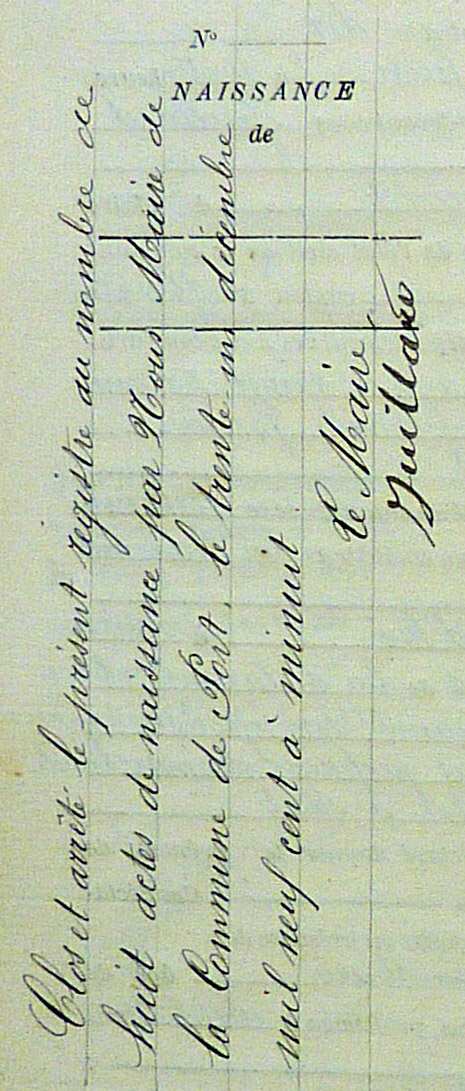 N°
NAISSANCE
de
Clos et arrêté le présent registre au nombre de
huit actes de naissance par Nous Maire de
la Commune de Port, le trente-un décembre
mil neuf cent à minuit
Le Maire